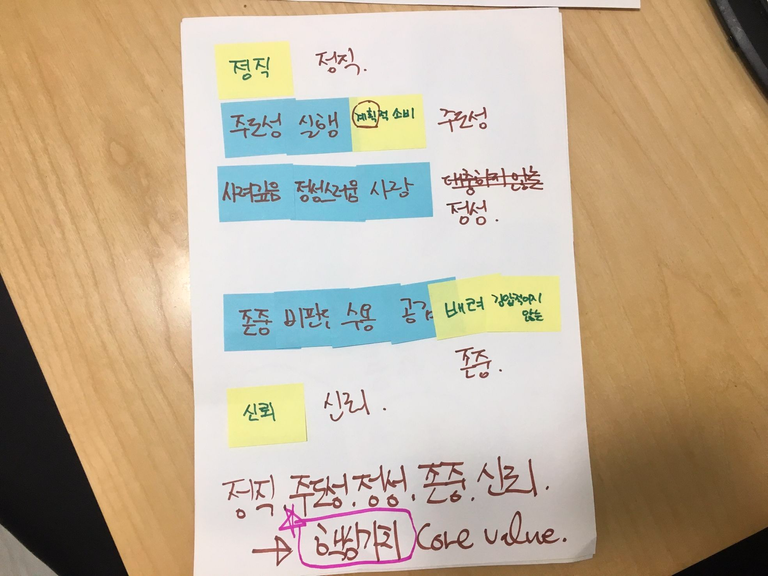 정직 정직.
주도성 실행 계획적 소비 주도성
사려깊음 정성스러움 사랑 대충하지 않는
정성.
존중 비판 수용 공감 배려 강압적이지
않는
존중.
신뢰 신뢰.
정직 주도성, 정성, 존중, 신뢰.
→ 핵심가치 Core value.